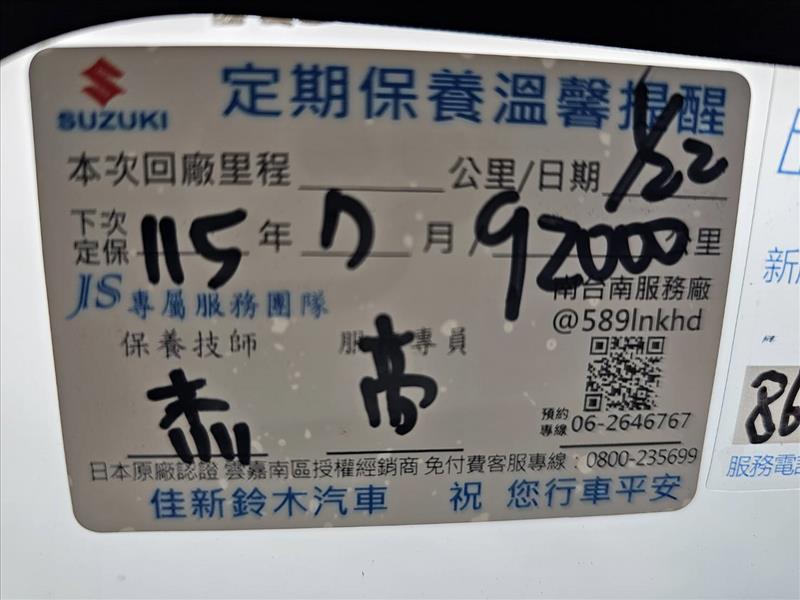 SUZUKI 定期保養溫馨提醒
本次回廠里程 公里/日期 1/22
下次定保 115 年 7 月 / 92000 公里
JS專屬服務團隊
南台南服務廠
@589lnkhd
保養技師 服 專員
杰 高
預約專線 06-2646767
日本原廠認證 雲嘉南區授權經銷商 免付費客服專線：0800-235699
佳新鈴木汽車 祝 您行車平安
新
86
服務電